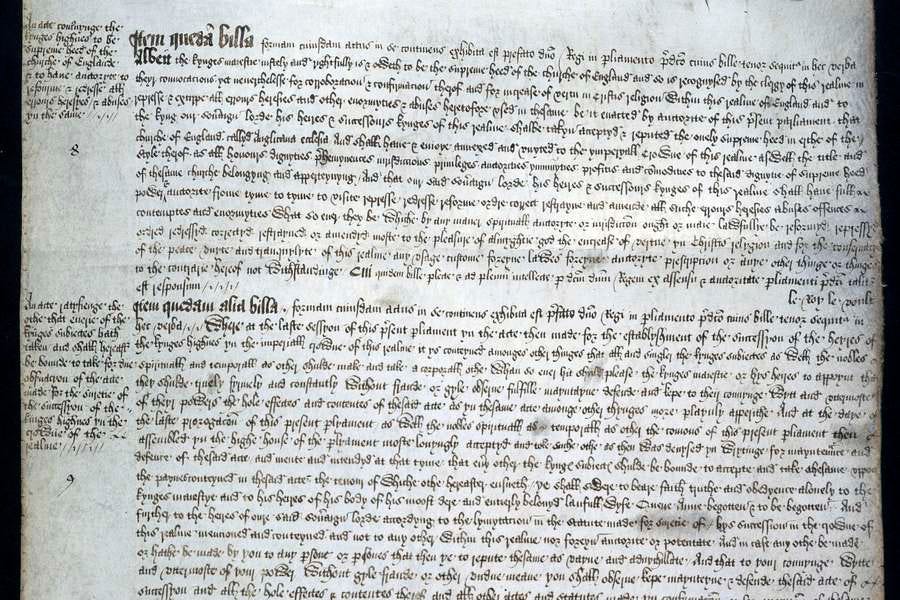 An acte conc'nynge the
kynges highnes to be
supreme heed of the
churche of Englande
& to have auctoryte to
reforme & redresse all
errours heresyes & abuses
yn the same
8
Item quedam billa formam cuiusdam actus in se continens exhibita est prefato dno Regi in parliamento pdco cuius bille tenor sequit' in hec verba
Albeit the kynges majestie justely and ryghtfully is & oweth to be the supreme heed of the churche of England and so is recognysed by the clergy of this realme in
theyr convocations yet neverthelesse for corroboracion & confirmacion therof and for increase of vertu in Cristis religion within this realme of England and to
represse & extyrpe all errours heresies and other enormytes & abuses heretofore used in thesame be it enacted by auctorite of this present parliament that
the kyng our soveraign lorde his heires & successours kynges of this realme shalbe takyn acceptyd & reputed the onely supreme heed in erthe of the
churche of England callyd Anglicana ecclesia And shall have & enjoye annexed and unyted to the ymperyall crowne of this realme aswell the title and
style therof as all honours dignytes prehemynences jurisdiccions privileges auctorities ymmunytes profitis and comodities to thesaid dignyte of supreme heed
of thesame churche belongyng and apperteynyng And that our said soveraign lorde his heires & successours kynges of this realme shall have full
power & auctorite from tyme to tyme to visite represse redresse reforme ordre correct restrayne and amende all suche errours heresies abuses offences
contemptes and enormytes what so ever they be whiche by any maner spirituall auctoryte or jurisdiccion ought or maie lawfullye be reformyd repressyd
ordred redressyd correctyd restrayned or amendyd moste to the pleasure of almyghtie god the encrease of vertue yn Christis relygion and for the conservacy
of the peace unyte and tranquylyte of this realme any usage custome foreyne lawes foreyne auctoryte prescription or anye other thinge or thinges
to the contrarie hereof not withstandinge Cui quidem bille plecte & ad plenum intellecte p dcm dnm Regem ex assensu & auctoritate parliamenti pdci taliter
est responsum
le Roy le voult
An acte ratifienge the
othe that everie of the
kynges subiectes hath
taken and shall hereaft'
be bounde to take for due
observacion of the acte
made for the suretie of
the succession of the
kynges highnes yn the
crowne of the
realme
9
Item quedam alia billa formam cuiusdam actus in se continens exhibita est pfato dno Regi in parliamento pdco cuius bille tenor sequitur in
hec verba Where at the laste session of this present parliament yn the acte then made for the establishement of the succession of the heires of
the kynges highnes yn the imperiall crowne of this realme it ys conteyned amonges other thinges that all and singler the kynges subiectes as well the nobles
spirituall and temporall as other shulde make and take a corporall othe whan so ever hit shuld please the kynges majestie or hys heires to appoynt that
they shulde truely fyrmely and constantly without fraude or gyle observe fulfille mayntayne defende and kepe to their connynge wytt and uttermoste
of their powers the hole effectes and contentes of thesaid acte as yn thesame acte amonge other thynges more playnly apperithe And at the daye of
the laste prorogacion of this present parlyament as well the nobles spirituall & temporall as other the comons of this present parliament then
assembled yn the highe house of the parlyament moste lovyngly acceptyd and toke suche othe as then was devysed yn wrytinge for mayntenance and
defence of thesaid acte and mente and intendyd at that tyme that every other the kynges subiectes shulde be bounde to accepte and take thesame upon
the paynes conteyned in thesaid acte the tenour of whiche othe hereafter ensueth ye shall swere to beare faith truthe and obedyence alonely to the
kynges majestye and to his heires of his body of his moost dere and entierly belovyd laufull wyfe Quene Anne begotten & to be begotten And
further to the heires of oure said soveraign lorde accordyng to the lymytacion in the statute made for suretie of hys succession in the crowne of
this realme mencioned and conteyned and not to any other within this realme nor foreyn auctorite or potentate And in case any othe be made
or hathe be made by you to any person or persones that then ye to repute thesame as vayne and adnychillate And that to your connynge wytte
and uttermoste of your power without gyle fraude or other undue meane you shall observe kepe maynteyne & defende thesaid acte of
succession and all the hole effectes & contentes therof and all other actes and statutes made yn confirmacion